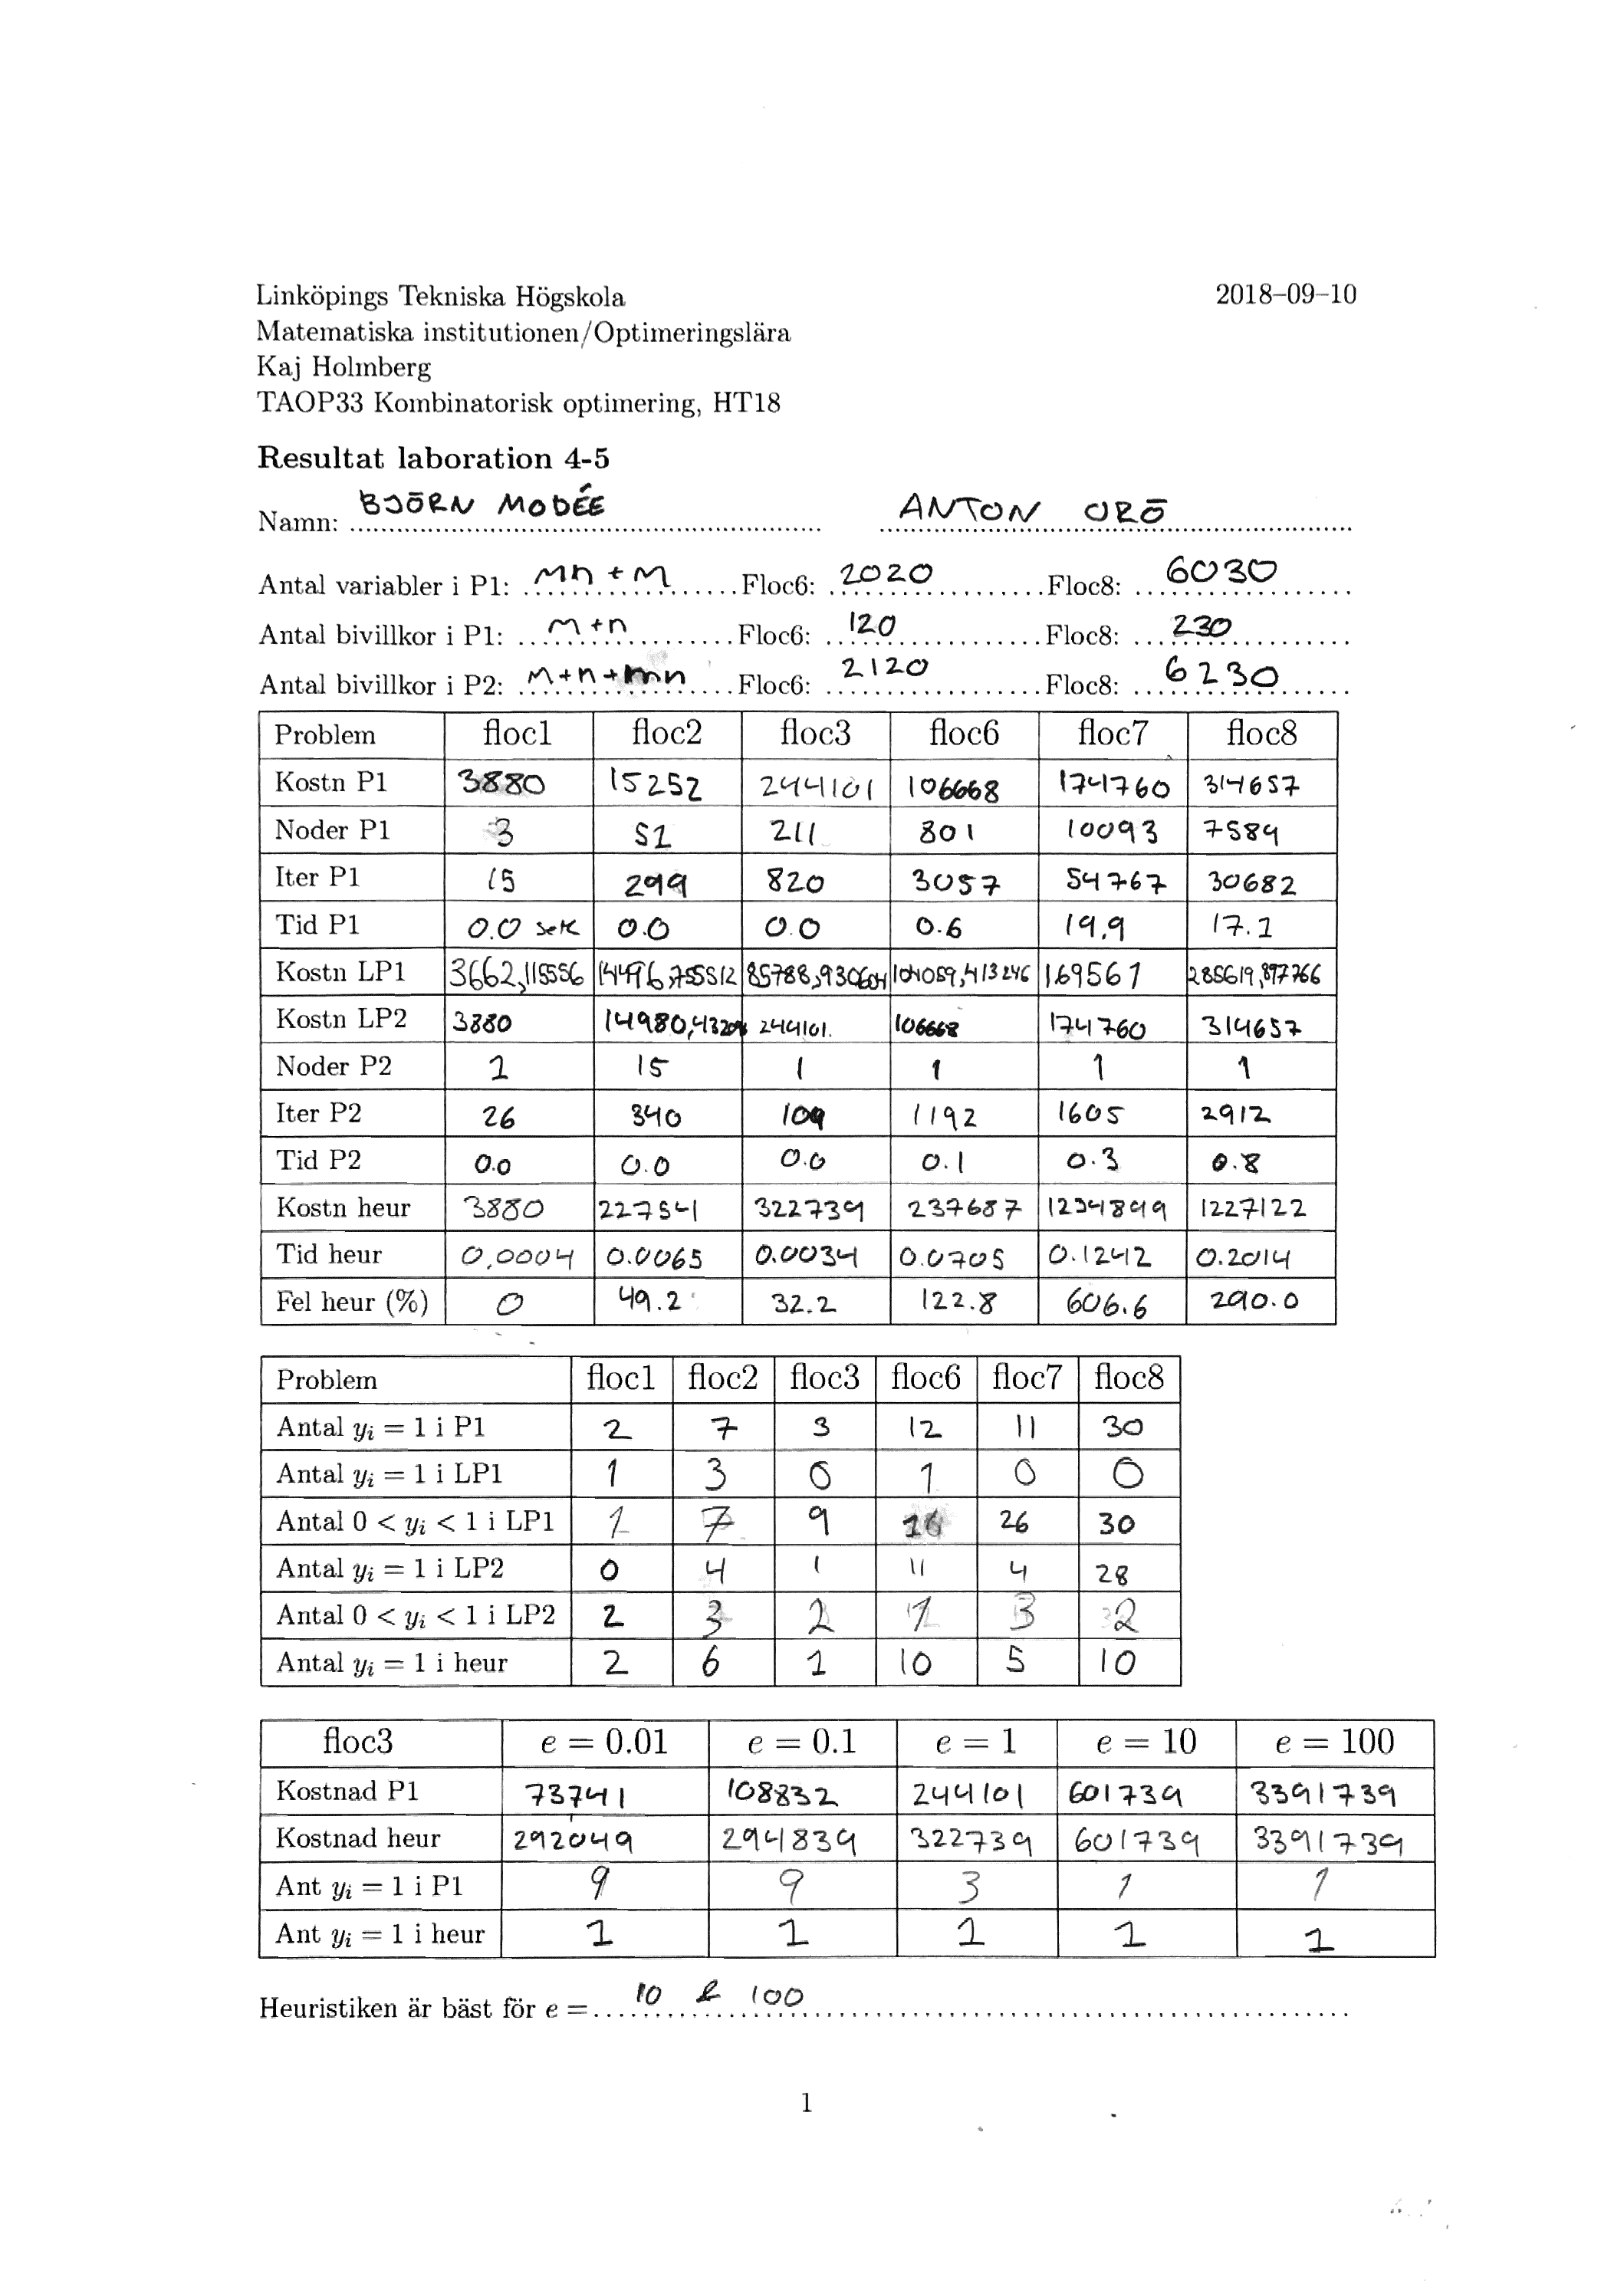 Linköpings Tekniska Högskola 2018–09–10
Matematiska institutionen/Optimeringslära
Kaj Holmberg
TAOP33 Kombinatorisk optimering, HT18
Resultat laboration 4-5
Namn: BJÖRN MODÉE ANTON ORÖ
Antal variabler i P1: mn + m Floc6: 2020 Floc8: 6030
Antal bivillkor i P1: m+n Floc6: 120 Floc8: 230
Antal bivillkor i P2: m+n+mn Floc6: 2120 Floc8: 6230
Problem floc1 floc2 floc3 floc6 floc7 floc8
Kostn P1 3880 15252 244101 106668 174760 314657
Noder P1 3 51 211 801 10093 7589
Iter P1 15 299 820 3057 54767 30682
Tid P1 0.0 sek 0.0 0.0 0.6 19.9 17.1
Kostn LP1 3662,115556 85788,930604 104059,413246 169561 285619,897766
Kostn LP2 3880 244101. 106668 174760 314657
Noder P2 1 15 1 1 1 1
Iter P2 26 340 109 1192 1605 2912
Tid P2 0.0 0.0 0.0 0.1 0.3 0.8
Kostn heur 3880 227541 322739 237687 1234899 1227122
Tid heur 0,0004 0.0065 0.0034 0.0705 0.1242 0.2014
Fel heur (%) 0 49.2 32.2 122.8 606.6 290.0
Problem floc1 floc2 floc3 floc6 floc7 floc8
Antal yᵢ = 1 i P1 2 7 3 12 11 30
Antal yᵢ = 1 i LP1 1 3 0 1 0 0
Antal 0 < yᵢ < 1 i LP1 1 7 9 26 30
Antal yᵢ = 1 i LP2 0 4 1 11 4 28
Antal 0 < yᵢ < 1 i LP2 2 3 2 1 3 2
Antal yᵢ = 1 i heur 2 6 1 10 5 10
floc3 e = 0.01 e = 0.1 e = 1 e = 10 e = 100
Kostnad P1 73741 108832 244101 601739 3391739
Kostnad heur 292049 294839 322739 601739 3391739
Ant yᵢ = 1 i P1 9 9 3 1 1
Ant yᵢ = 1 i heur 1 1 1 1 1
Heuristiken är bäst för e = 10 & 100
1